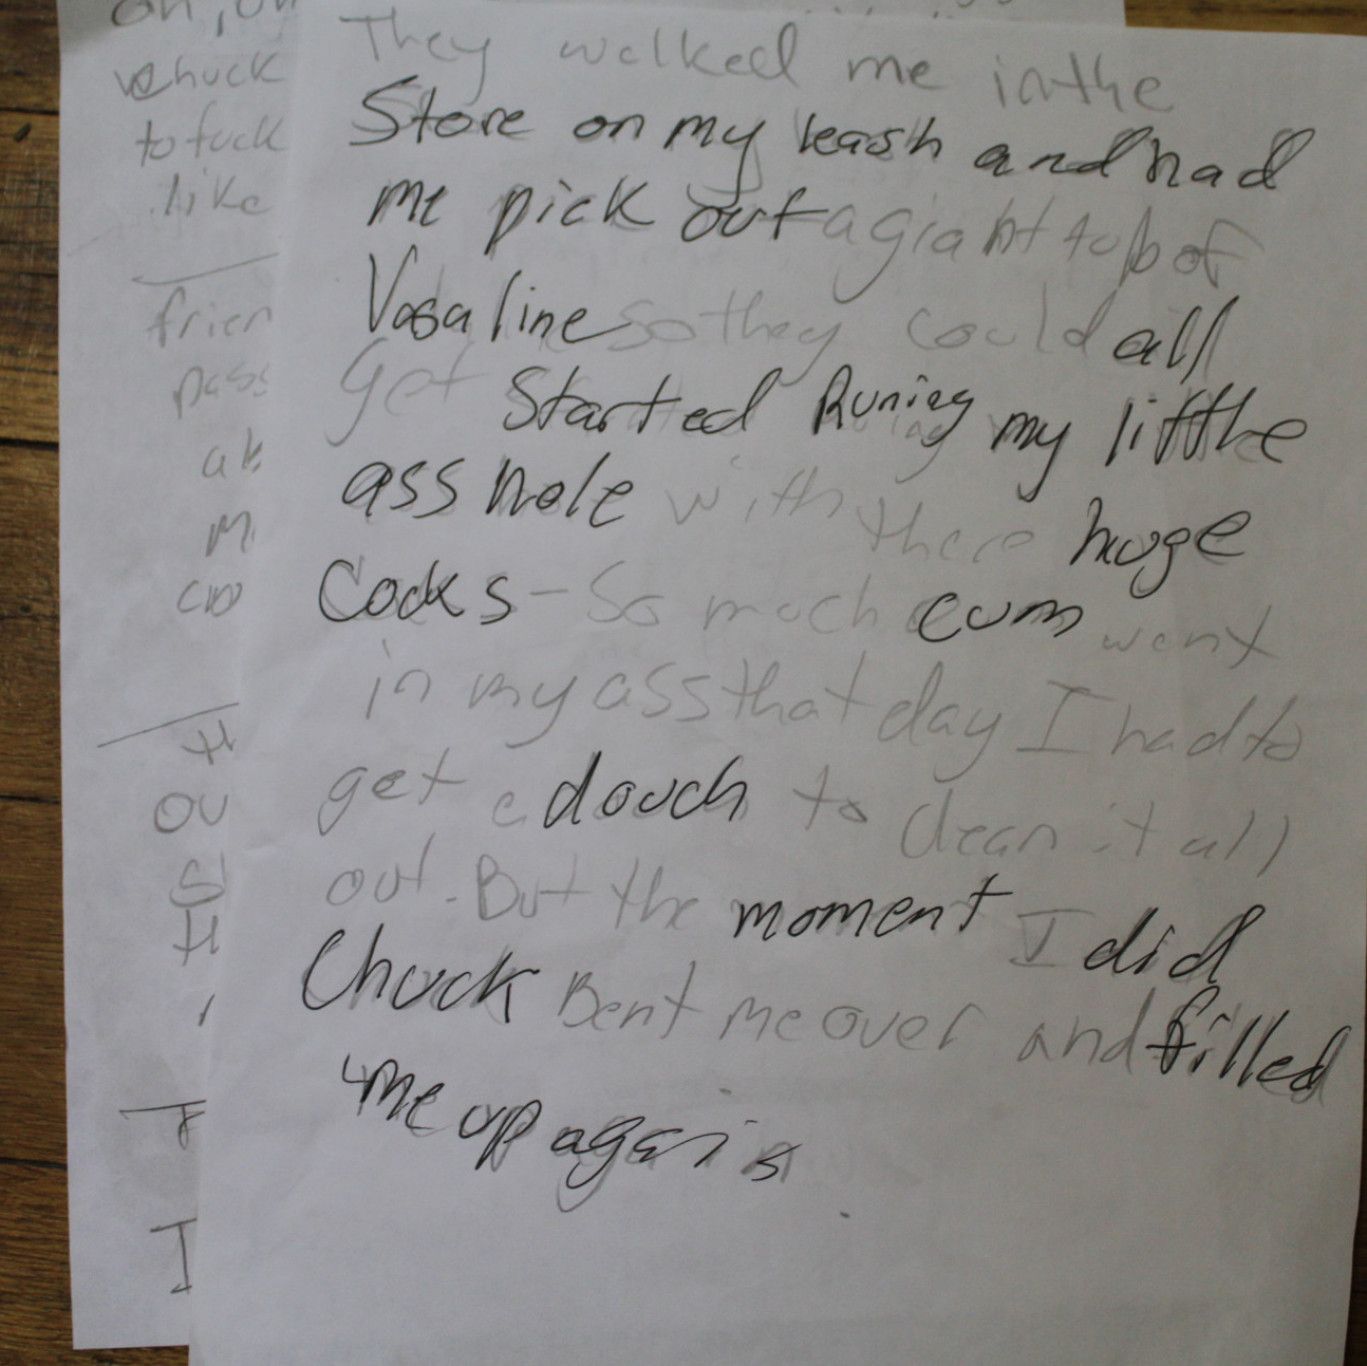 chuck
to fuck
like
frien
pass
They walked me in the
Store on my leash and had
me pick out a giant tub of
Vasaline so they could all
get Started Runing my little
ass hole with there huge
Cocks - So much cum went
in my ass that day I had to
get a douch to clean it all
out. But the moment I did
Chuck Bent me over and filled
me up again